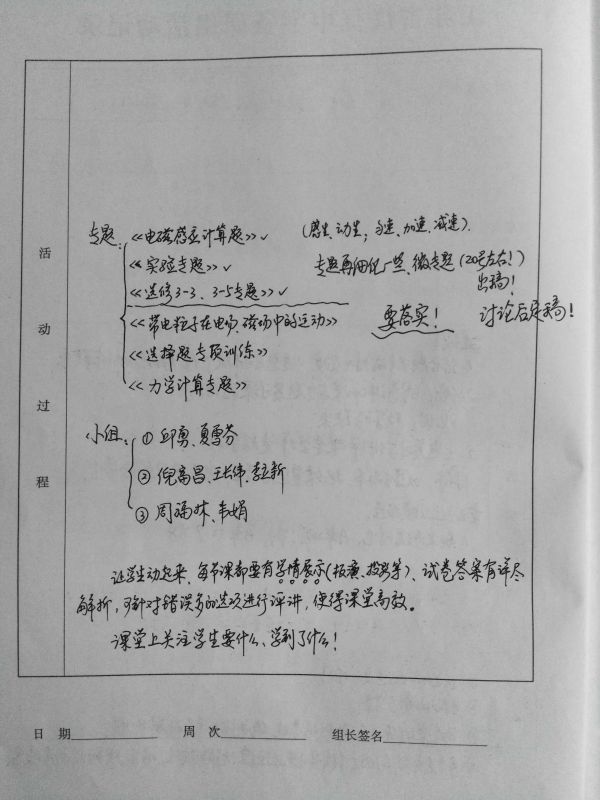 活动过程
专题: 《电磁感应计算题》✓ (感生、动生; 匀速、加速、减速).
《实验专题》✓ 专题再细化一些、微专题 (20号左右!)
出稿!
《选修3-3、3-5专题》✓
《带电粒子在电场、磁场中的运动》 要落实! 讨论后定稿!
《选择题专项训练》
《力学计算专题》
小组: ① 邱勇、夏雪芬
② 倪高昌、王长伟、李立新
③ 周福林、韦娟
让学生动起来、每节课都要有学情展示(板演、投影等)、试卷答案有详尽
解析, 可针对错误多的选项进行评讲, 使得课堂高效。
课堂上关注学生要什么、学到了什么!
日 期 周 次 组长签名